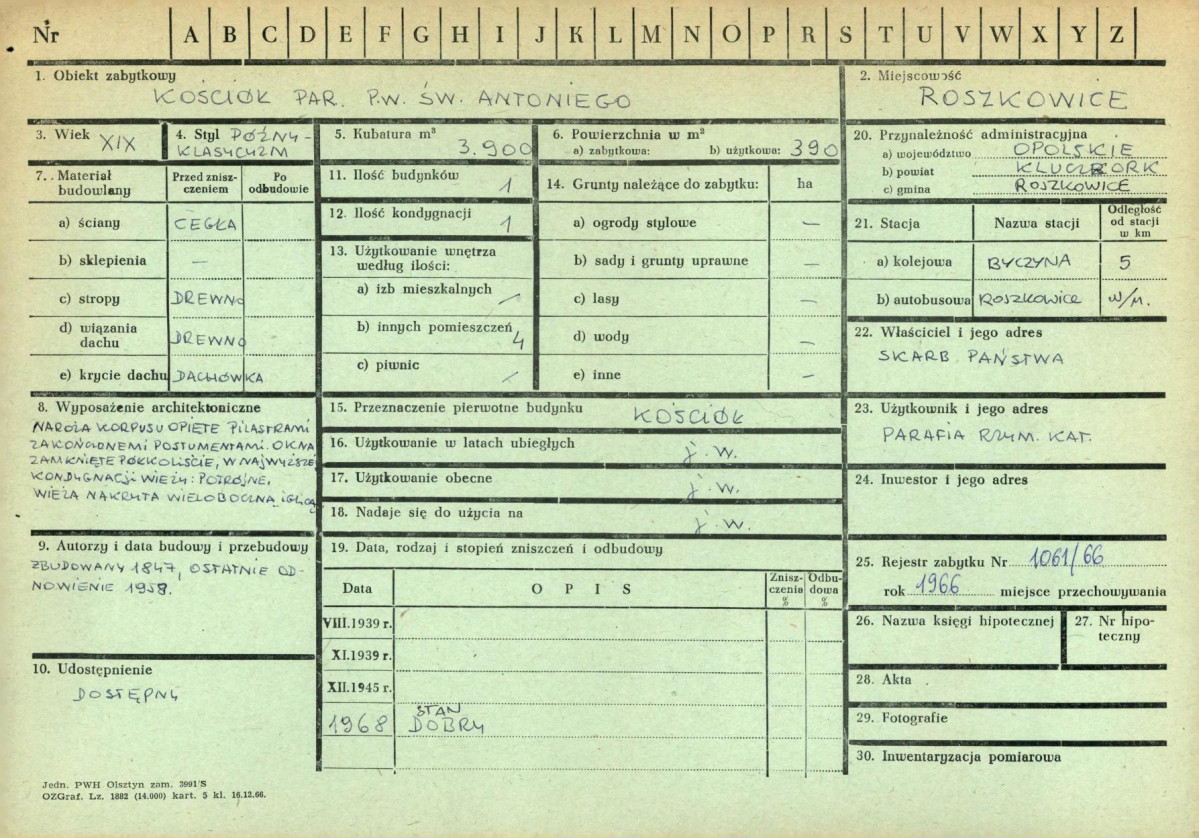 Nr A B C D E F G H I J K L M N O P R S T U V W X Y Z
1. Obiekt zabytkowy
KOŚCIÓŁ PAR. P.W. ŚW. ANTONIEGO
2. Miejscowość
ROSZKOWICE
3. Wiek XIX
4. Styl PÓŹNY-
KLASYCYZM
5. Kubatura m³
3.900
6. Powierzchnia w m²
a) zabytkowa: b) użytkowa: 390
7. Materiał
budowlany
Przed znisz-
czeniem
Po
odbudowie
a) ściany CEGŁA
b) sklepienia —
c) stropy DREWNO
d) wiązania
dachu DREWNO
e) krycie dachu DACHÓWKA
8. Wyposażenie architektoniczne
NAROŻA KORPUSU OPIĘTE PILASTRAMI
ZAKOŃCZONEMI POSTUMENTAMI. OKNA
ZAMKNIĘTE PÓŁKOLIŚCIE, W NAJWYŻSZEJ
KONDYGNACJI WIEŻY: POTRÓJNE,
WIEŻA NAKRYTA WIELOBOCZNĄ IGLICĄ
9. Autorzy i data budowy i przebudowy
ZBUDOWANY 1847, OSTATNIE OD-
NOWIENIE 1958.
10. Udostępnienie
DOSTĘPNY
11. Ilość budynków
1
12. Ilość kondygnacji
1
13. Użytkowanie wnętrza
według ilości:
a) izb mieszkalnych
—
b) innych pomieszczeń
4
c) piwnic
—
14. Grunty należące do zabytku: ha
a) ogrody stylowe —
b) sady i grunty uprawne —
c) lasy —
d) wody —
e) inne —
15. Przeznaczenie pierwotne budynku KOŚCIÓŁ
16. Użytkowanie w latach ubiegłych j. w.
17. Użytkowanie obecne j. w.
18. Nadaje się do użycia na j. w.
19. Data, rodzaj i stopień zniszczeń i odbudowy
Data
O P I S
Znisz-
czenia
%
Odbu-
dowa
%
VIII.1939 r.
XI.1939 r.
XII.1945 r.
1968 STAN
DOBRY
20. Przynależność administracyjna
a) województwo OPOLSKIE
b) powiat KLUCZBORK
c) gmina ROSZKOWICE
21. Stacja
Nazwa stacji
Odległość
od stacji
w km
a) kolejowa BYCZYNA 5
b) autobusowa ROSZKOWICE W/M.
22. Właściciel i jego adres
SKARB PAŃSTWA
23. Użytkownik i jego adres
PARAFIA RZYM. KAT.
24. Inwestor i jego adres
25. Rejestr zabytku Nr 1061/66
rok 1966 miejsce przechowywania
26. Nazwa księgi hipotecznej
27. Nr hipo-
teczny
28. Akta
29. Fotografie
30. Inwentaryzacja pomiarowa
Jedn. PWH Olsztyn zam. 3991/S
OZGraf. Lz. 1882 (14.000) kart. 5 kl. 16.12.66.